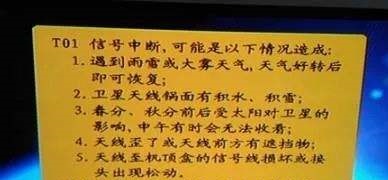 T01 信号中断,可能是以下情况造成;
1. 遇到雨雷或大雾天气,天气好转后
即可恢复;
2. 卫星天线锅面有积水、积雪;
3. 春分、秋分前后受太阳对卫星的
影响,中午有时会无法收看;
4. 天线歪了或天线前方有遮挡物;
5. 天线至机顶盒的信号线损坏或接
头出现松动。